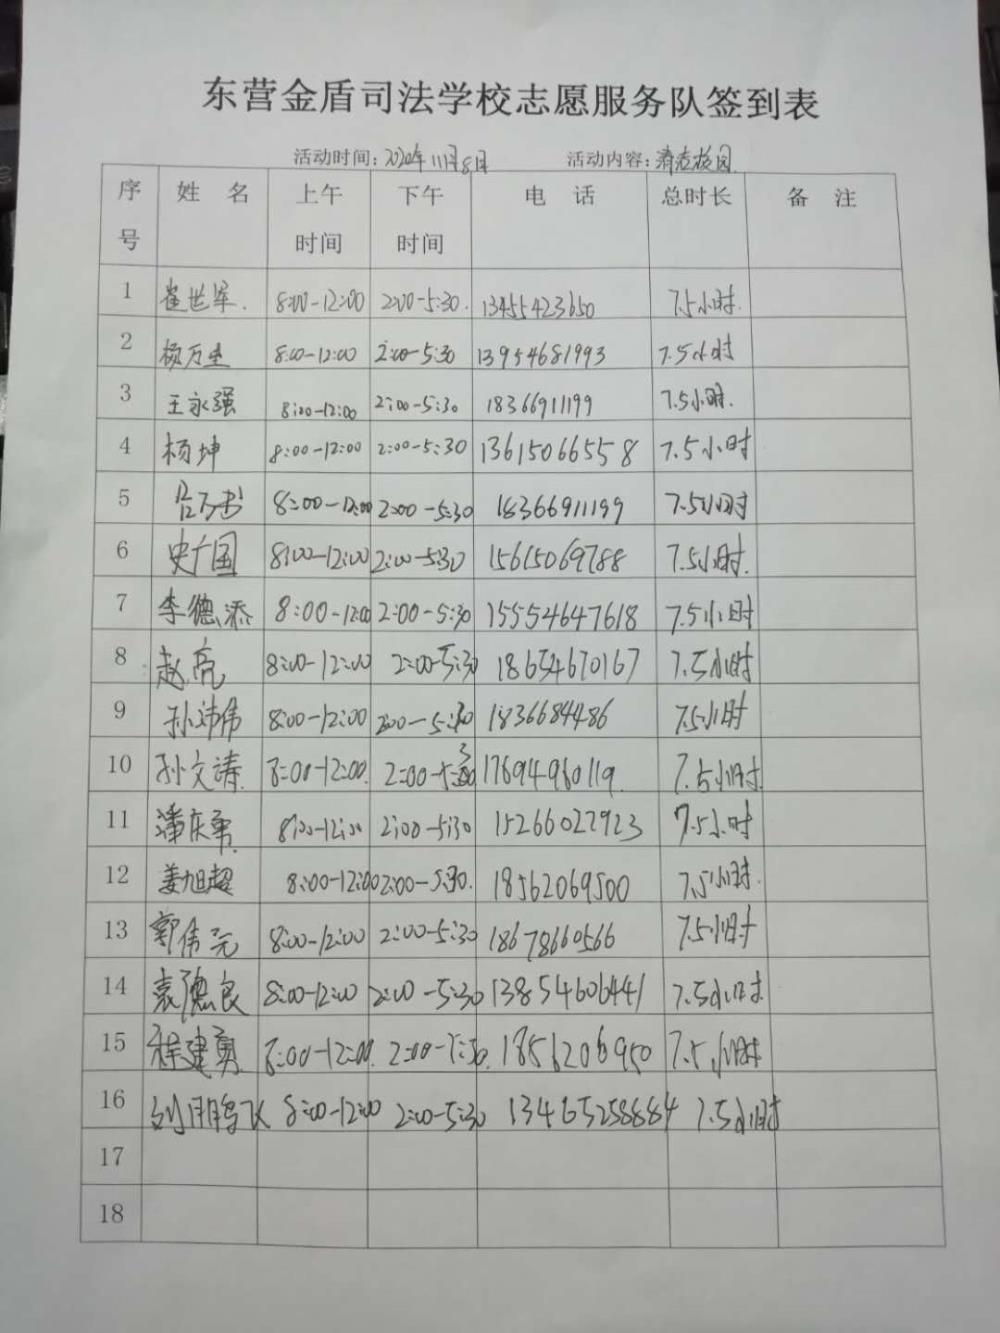 东营金盾司法学校志愿服务队签到表
活动时间：2020年11月8日 活动内容：清洁校园
序号 姓名 上午时间 下午时间 电话 总时长 备注
1 崔世军. 8:00-12:00 2:00-5:30. 13455423650 7.5小时.
2 杨万里 8:00-12:00 2:00-5:30 13954681993 7.5小时
3 王永强 8:00-12:00 2:00-5:30 18366911199 7.5小时.
4 杨坤 8:00-12:00 2:00-5:30 13615066558 7.5小时
5 8:00-12:00 2:00-5:30 18366911199 7.5小时
6 史广国 8:00-12:00 2:00-5:30 15615069788 7.5小时.
7 李德添 8:00-12:00 2:00-5:30 15554647618 7.5小时
8 赵亮 8:00-12:00 2:00-5:30 18654670167 7.5小时
9 孙沛伟 8:00-12:00 2:00-5:30 1836684486 7.5小时
10 孙文涛 8:00-12:00 2:00-5:30 17694960119. 7.5小时
11 潘庆军. 8:00-12:00 2:00-5:30 15266027923 7.5小时
12 姜旭超 8:00-12:00 2:00-5:30. 18562069500 7.5小时.
13 郭伟元 8:00-12:00 2:00-5:30 18678660566 7.5小时
14 袁德良 8:00-12:00 2:00-5:30 13854606441 7.5小时.
15 程建勇 8:00-12:00 2:00-5:30. 1856206950 7.5小时
16 刘鹏飞 8:00-12:00 2:00-5:30 13465258884 7.5小时
17
18